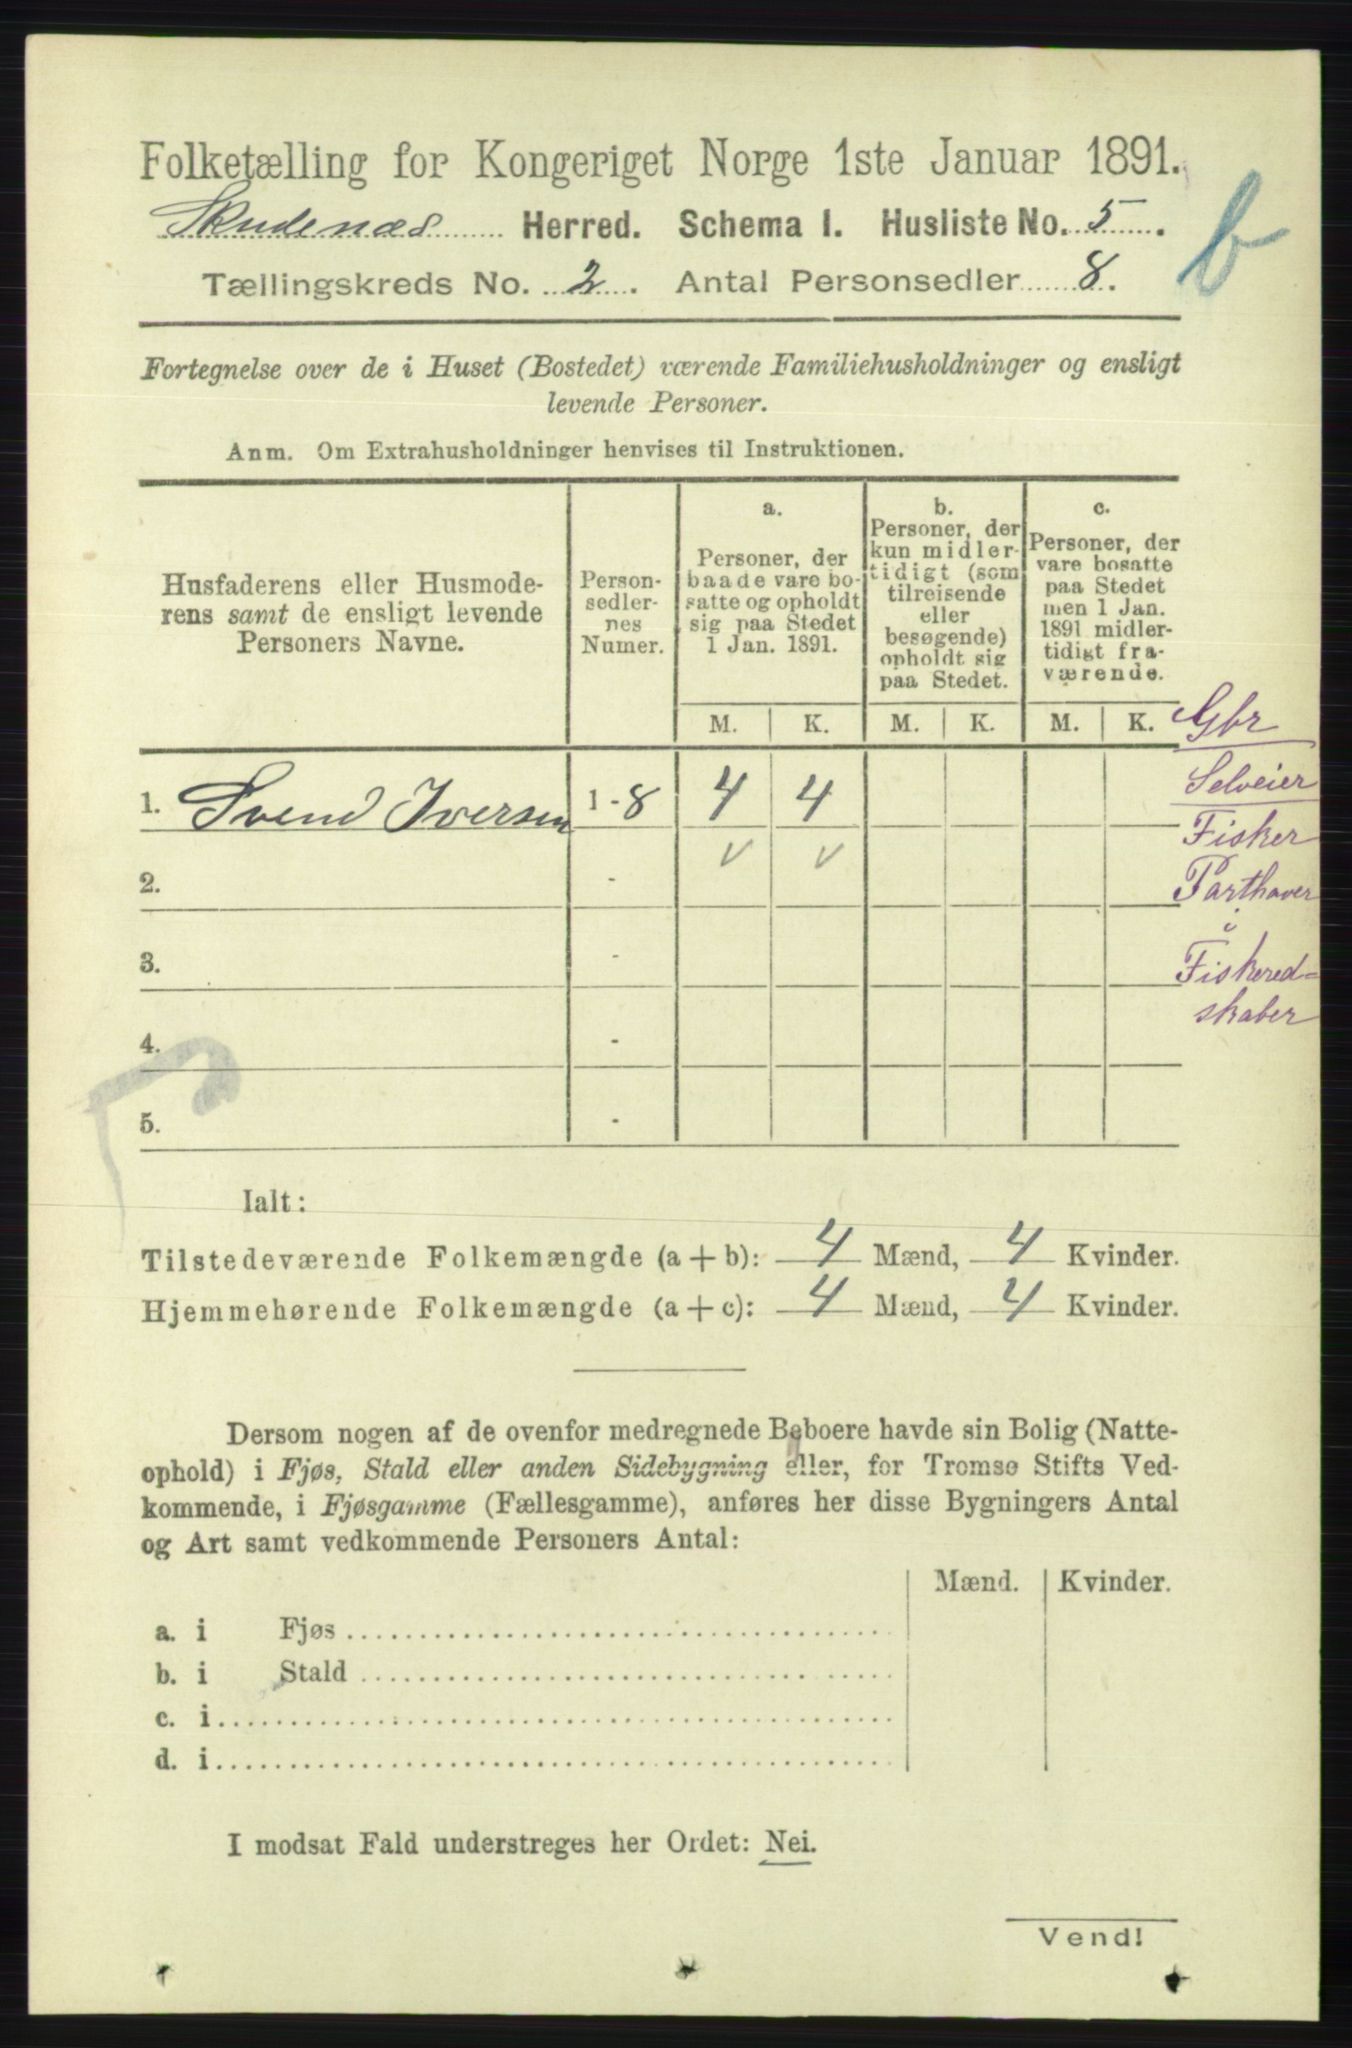 Folketælling for Kongeriget Norge 1ste Januar 1891.
Skudenæs Herred. Schema I. Husliste No. 5.
b
Tællingskreds No. 2. Antal Personsedler 8.
Fortegnelse over de i Huset (Bostedet) værende Familiehusholdninger og ensligt
levende Personer.
Anm. Om Extrahusholdninger henvises til Instruktionen.
Husfaderens eller Husmode-
rens samt de ensligt levende
Personers Navne.
Person-
sedler-
nes
Numer.
a.
Personer, der
baade vare bo-
satte og opholdt
sig paa Stedet
1 Jan. 1891.
b.
Personer, der
kun midler-
tidigt (som
tilreisende
eller
besøgende)
opholdt sig
paa Stedet.
c.
Personer, der
vare bosatte
paa Stedet
men 1 Jan.
1891 midler-
tidigt fra-
værende.
M. K. M. K. M. K.
Gbr
Selveier
Fisker
Parthaver
i
Fiskered-
skaber
1. Svend Iversen 1 - 8 4 4
v v
2. -
3. -
4. -
5. -
Ialt:
Tilstedeværende Folkemængde (a + b): 4 Mænd, 4 Kvinder.
Hjemmehørende Folkemængde (a + c): 4 Mænd, 4 Kvinder.
Dersom nogen af de ovenfor medregnede Beboere havde sin Bolig (Natte-
ophold) i Fjøs, Stald eller anden Sidebygning eller, for Tromsø Stifts Ved-
kommende, i Fjøsgamme (Fællesgamme), anføres her disse Bygningers Antal
og Art samt vedkommende Personers Antal:
Mænd. Kvinder.
a. i Fjøs
b. i Stald
c. i
d. i
I modsat Fald understreges her Ordet: Nei.
Vend!